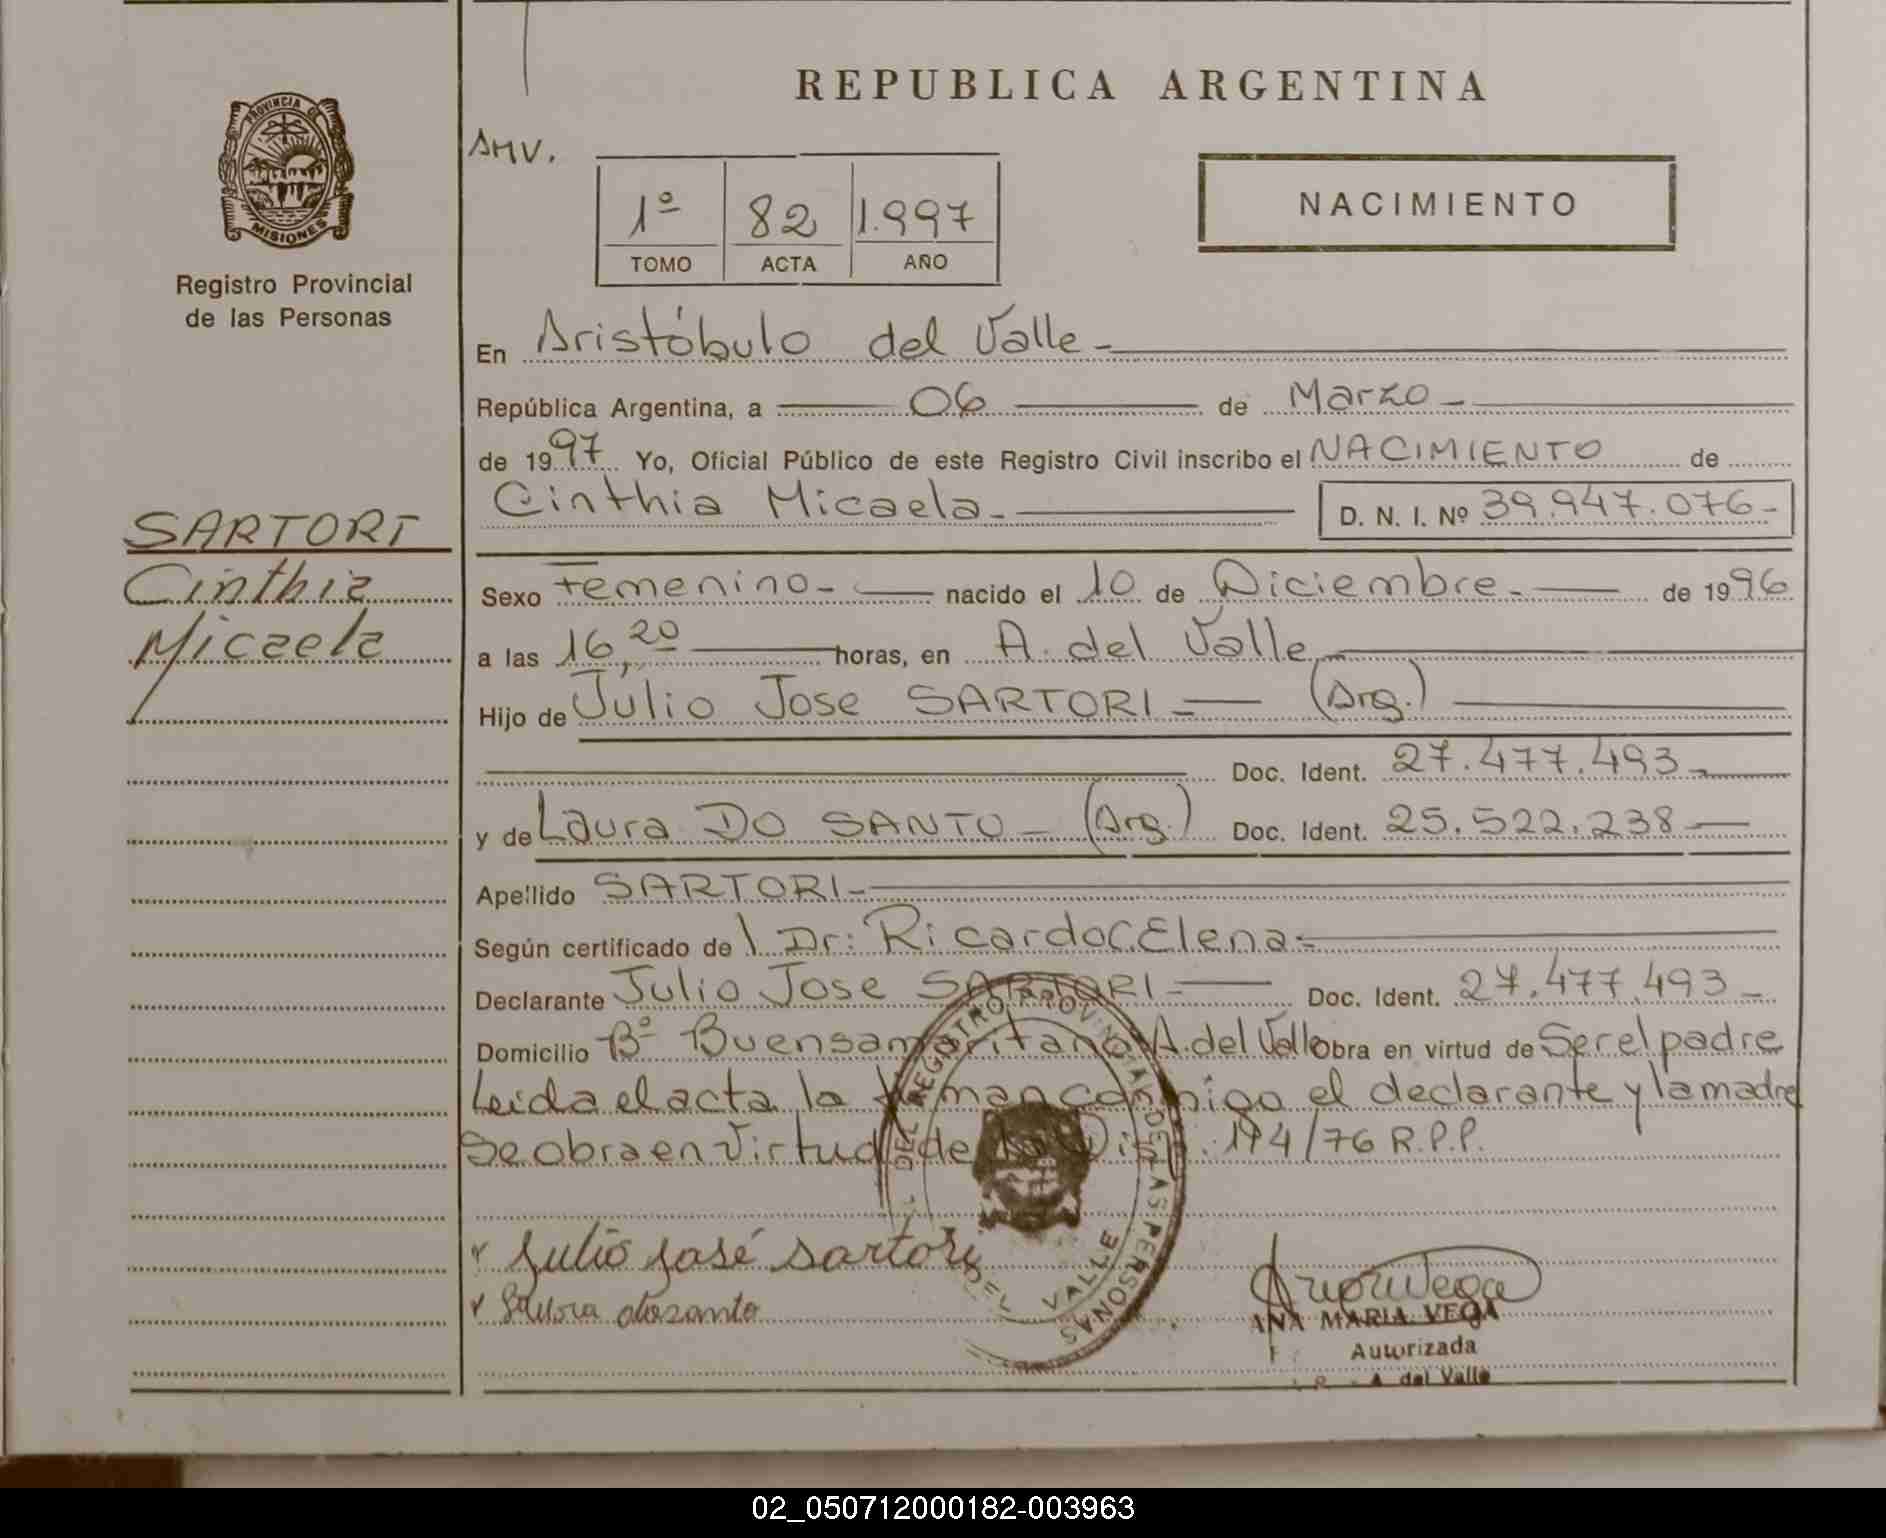 REPUBLICA ARGENTINA
PROVINCIA DE
MISIONES
Registro Provincial
de las Personas
AMV.
1º 82 1.997
TOMO ACTA AÑO
NACIMIENTO
En Aristóbulo del Valle-
República Argentina, a 06 de Marzo-
de 1997 Yo, Oficial Público de este Registro Civil inscribo el NACIMIENTO de
Cinthia Micaela- D. N. I. Nº 39.947.076-
SARTORI
Cinthia
Micaela
Sexo Femenino- nacido el 10 de Diciembre- de 1996
a las 16,20 horas, en A. del Valle
Hijo de Julio Jose SARTORI- (Arg.)
Doc. Ident. 27.477.493-
y de Laura DO SANTO- (Arg.) Doc. Ident. 25.522.238-
Apellido SARTORI-
Según certificado de Dr: Ricardo C. Elena-
Declarante Julio Jose SARTORI- Doc. Ident. 27.477.493-
Domicilio Bº Buensamaritano A. del Valle obra en virtud de Ser el padre
Leida el acta la firman conmigo el declarante y la madre
Se obra en Virtud de la 174/76 R.P.P.
DEL REGISTRO PROVINCIAL DE LAS PERSONAS
DEL VALLE
Julio José Sartori
Laura dosanto
ANA MARIA VEGA
Autorizada
A. del Valle
02_050712000182-003963